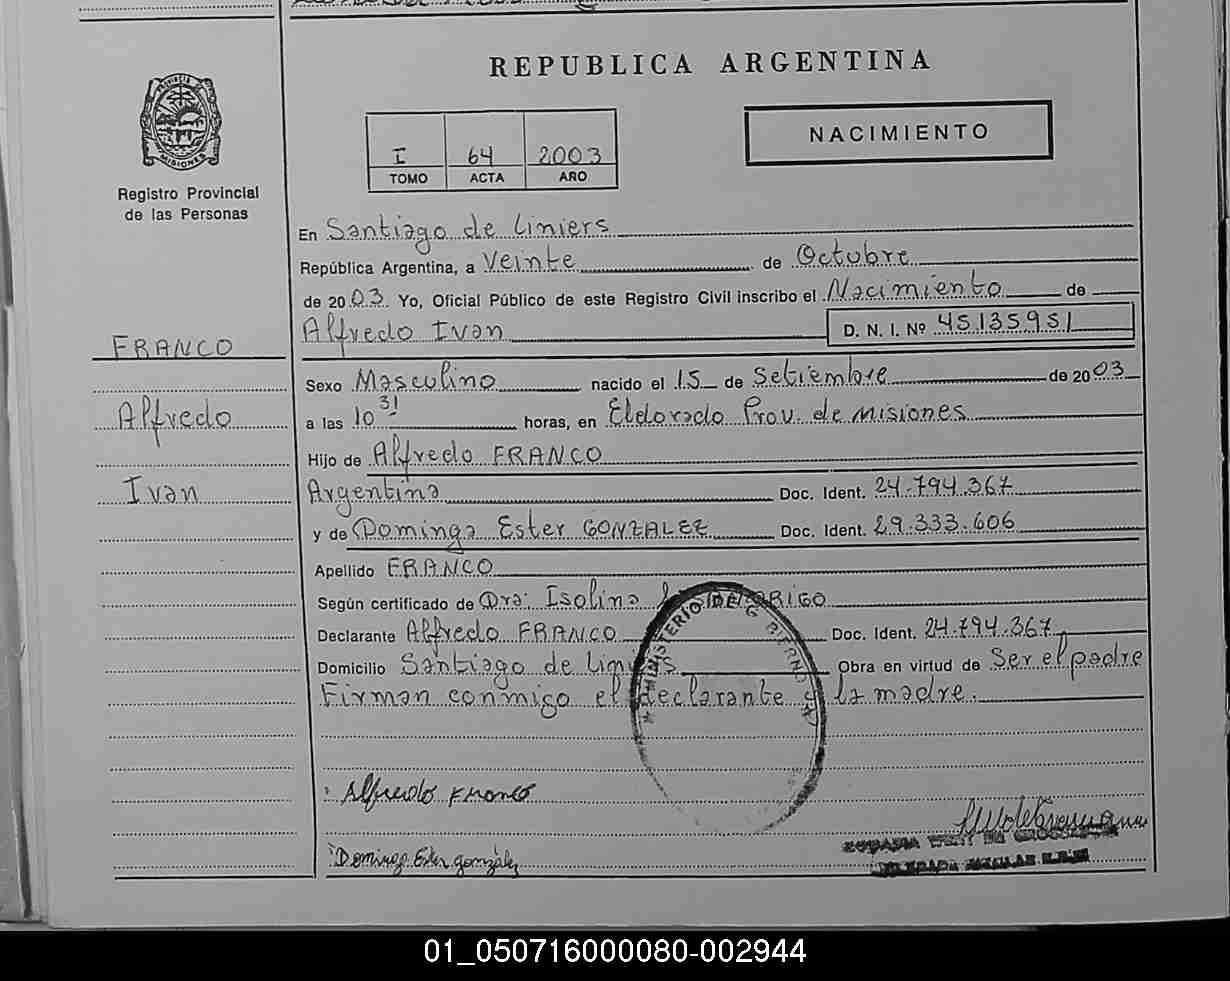 REPUBLICA ARGENTINA
PROVINCIA
MISIONES
Registro Provincial
de las Personas
I 64 2003
TOMO ACTA AÑO
NACIMIENTO
En Santiago de Liniers
República Argentina, a Veinte de Octubre
de 2003 Yo, Oficial Público de este Registro Civil inscribo el Nacimiento de
Alfredo Ivan D. N. I. Nº 45.135.951
FRANCO
Alfredo
Ivan
Sexo Masculino nacido el 15 de Setiembre de 2003
a las 10 31 horas, en Eldorado Prov. de Misiones
Hijo de Alfredo FRANCO
Argentina Doc. Ident. 24.794.367
y de Dominga Ester GONZALEZ Doc. Ident. 29.333.606
Apellido FRANCO
Según certificado de Dra: Isolina
Declarante Alfredo FRANCO Doc. Ident. 24.794.367
Domicilio Santiago de Liniers Obra en virtud de Ser el padre
Firman conmigo el declarante y la madre.
MINISTERIO DE GOBIERNO
Alfredo Franco
Dominga Ester González
01_050716000080-002944